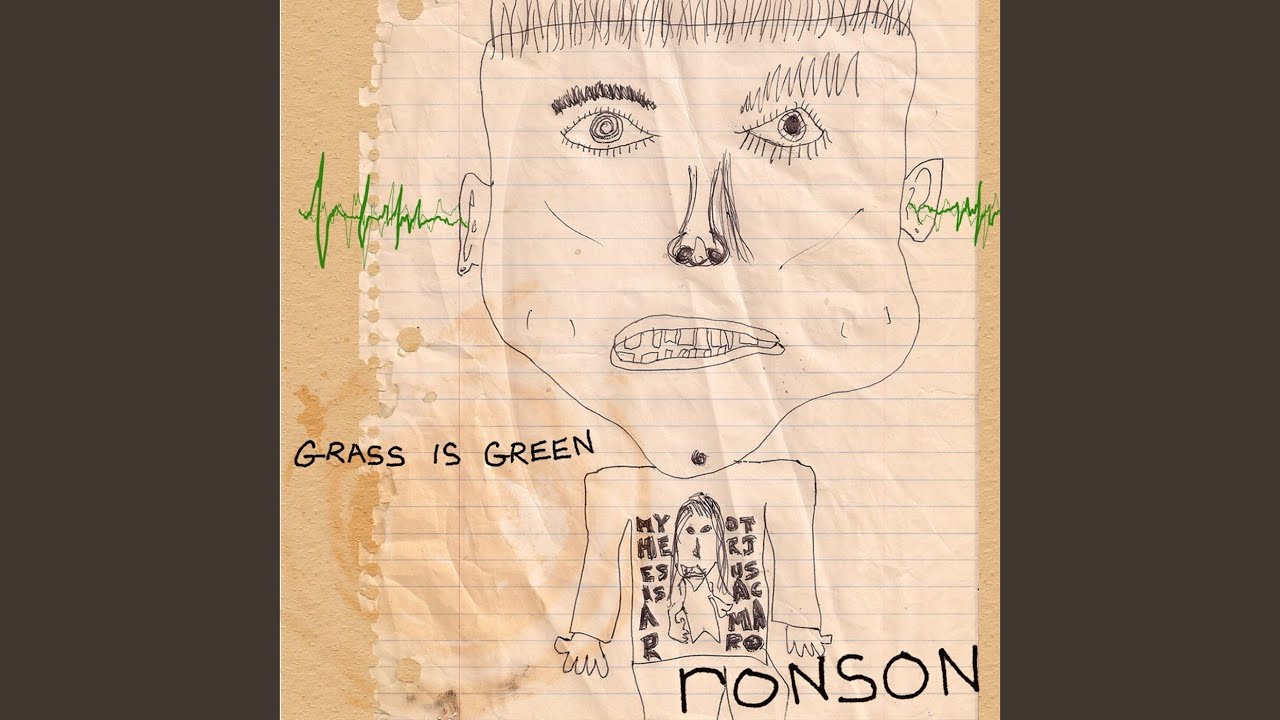 GRASS IS GREEN
MY OT
HE RJ
ES US
IS AC
A MA
R RO
ronSON